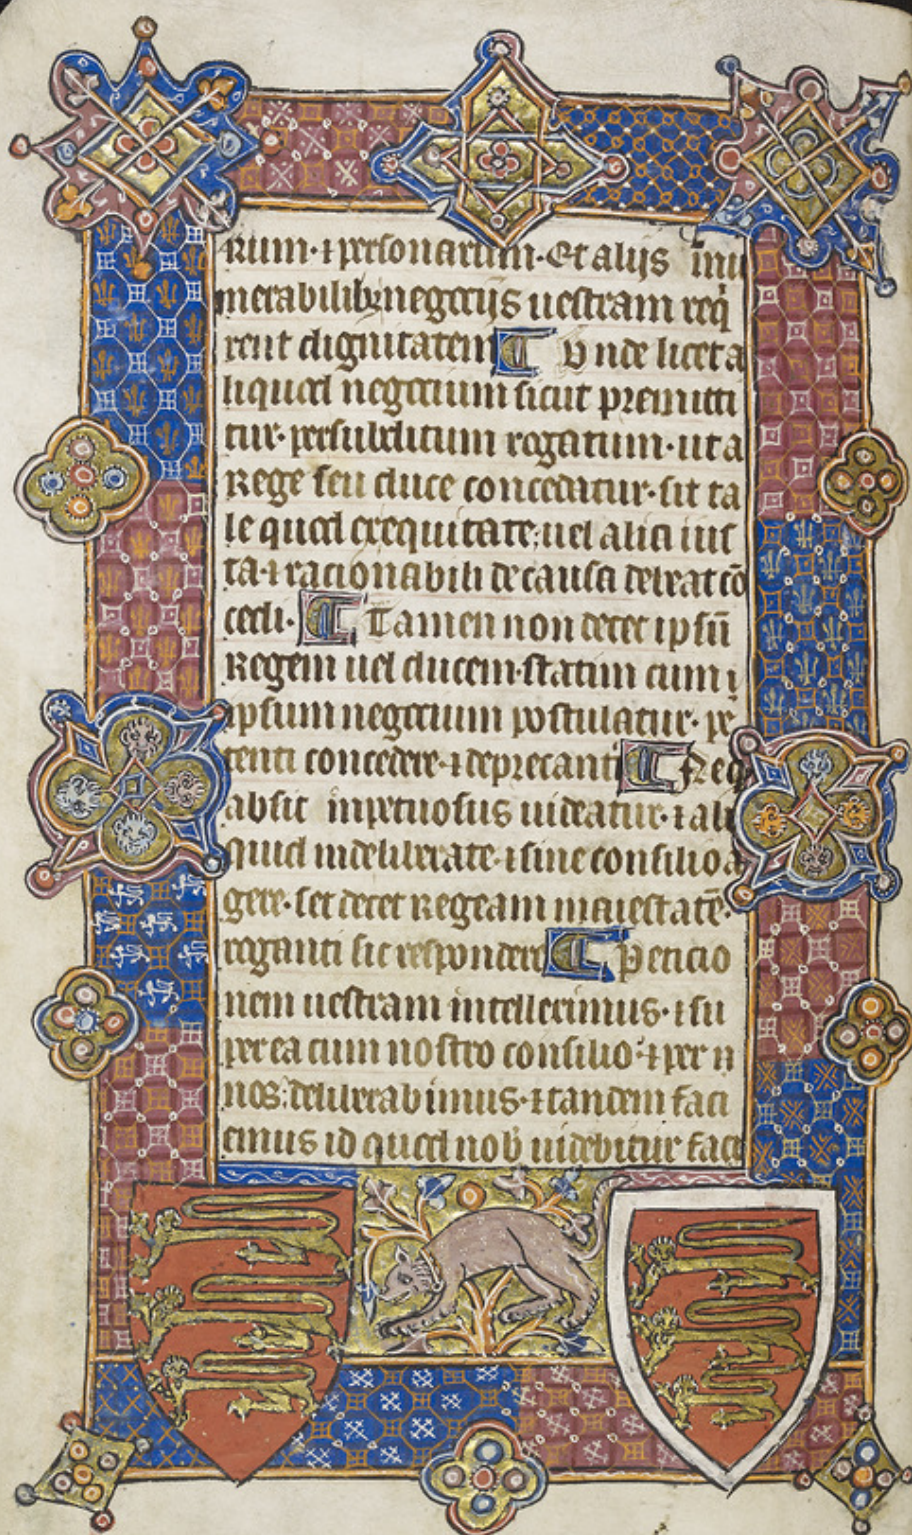 rum· ⁊ personarum· Et alijs inu
merabilibꝫ negocijs uestram req̇
rent dignitatem ¶ Unde licet a
liquod negocium sicut premitti
tur· per subditum rogatum· ut a
Rege seu duce concedatur· sit ta
le quod ex equitate; uel alia ius
ta· ⁊ racionabili de causa debeat cō
cedi· ¶ Tamen non decet ipsū
Regem uel ducem· statim cum
ipsum negocium postulatur· pe
tenti concedere· ⁊ deprecanti ¶ Ne
absit inpetuosus uideatur· ⁊ ali
quid indeliberate· ⁊ sine consilio a
gere· set decet Regeam maiestatē·
roganti sic respondere ¶ Peticio
nem uestram intelleximus· ⁊ su
per ea cum nostro consilio· ⁊ per
nos; deliberabimus· ⁊ tandem faci
emus id quod nob̄ uidebitur face